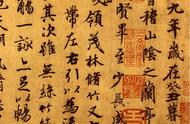 九年歲在癸丑暮
稽山陰之蘭亭
賢畢至少長咸
領茂林脩竹又
帶左右引以為
其次雖無絲竹
一詠亦足以暢